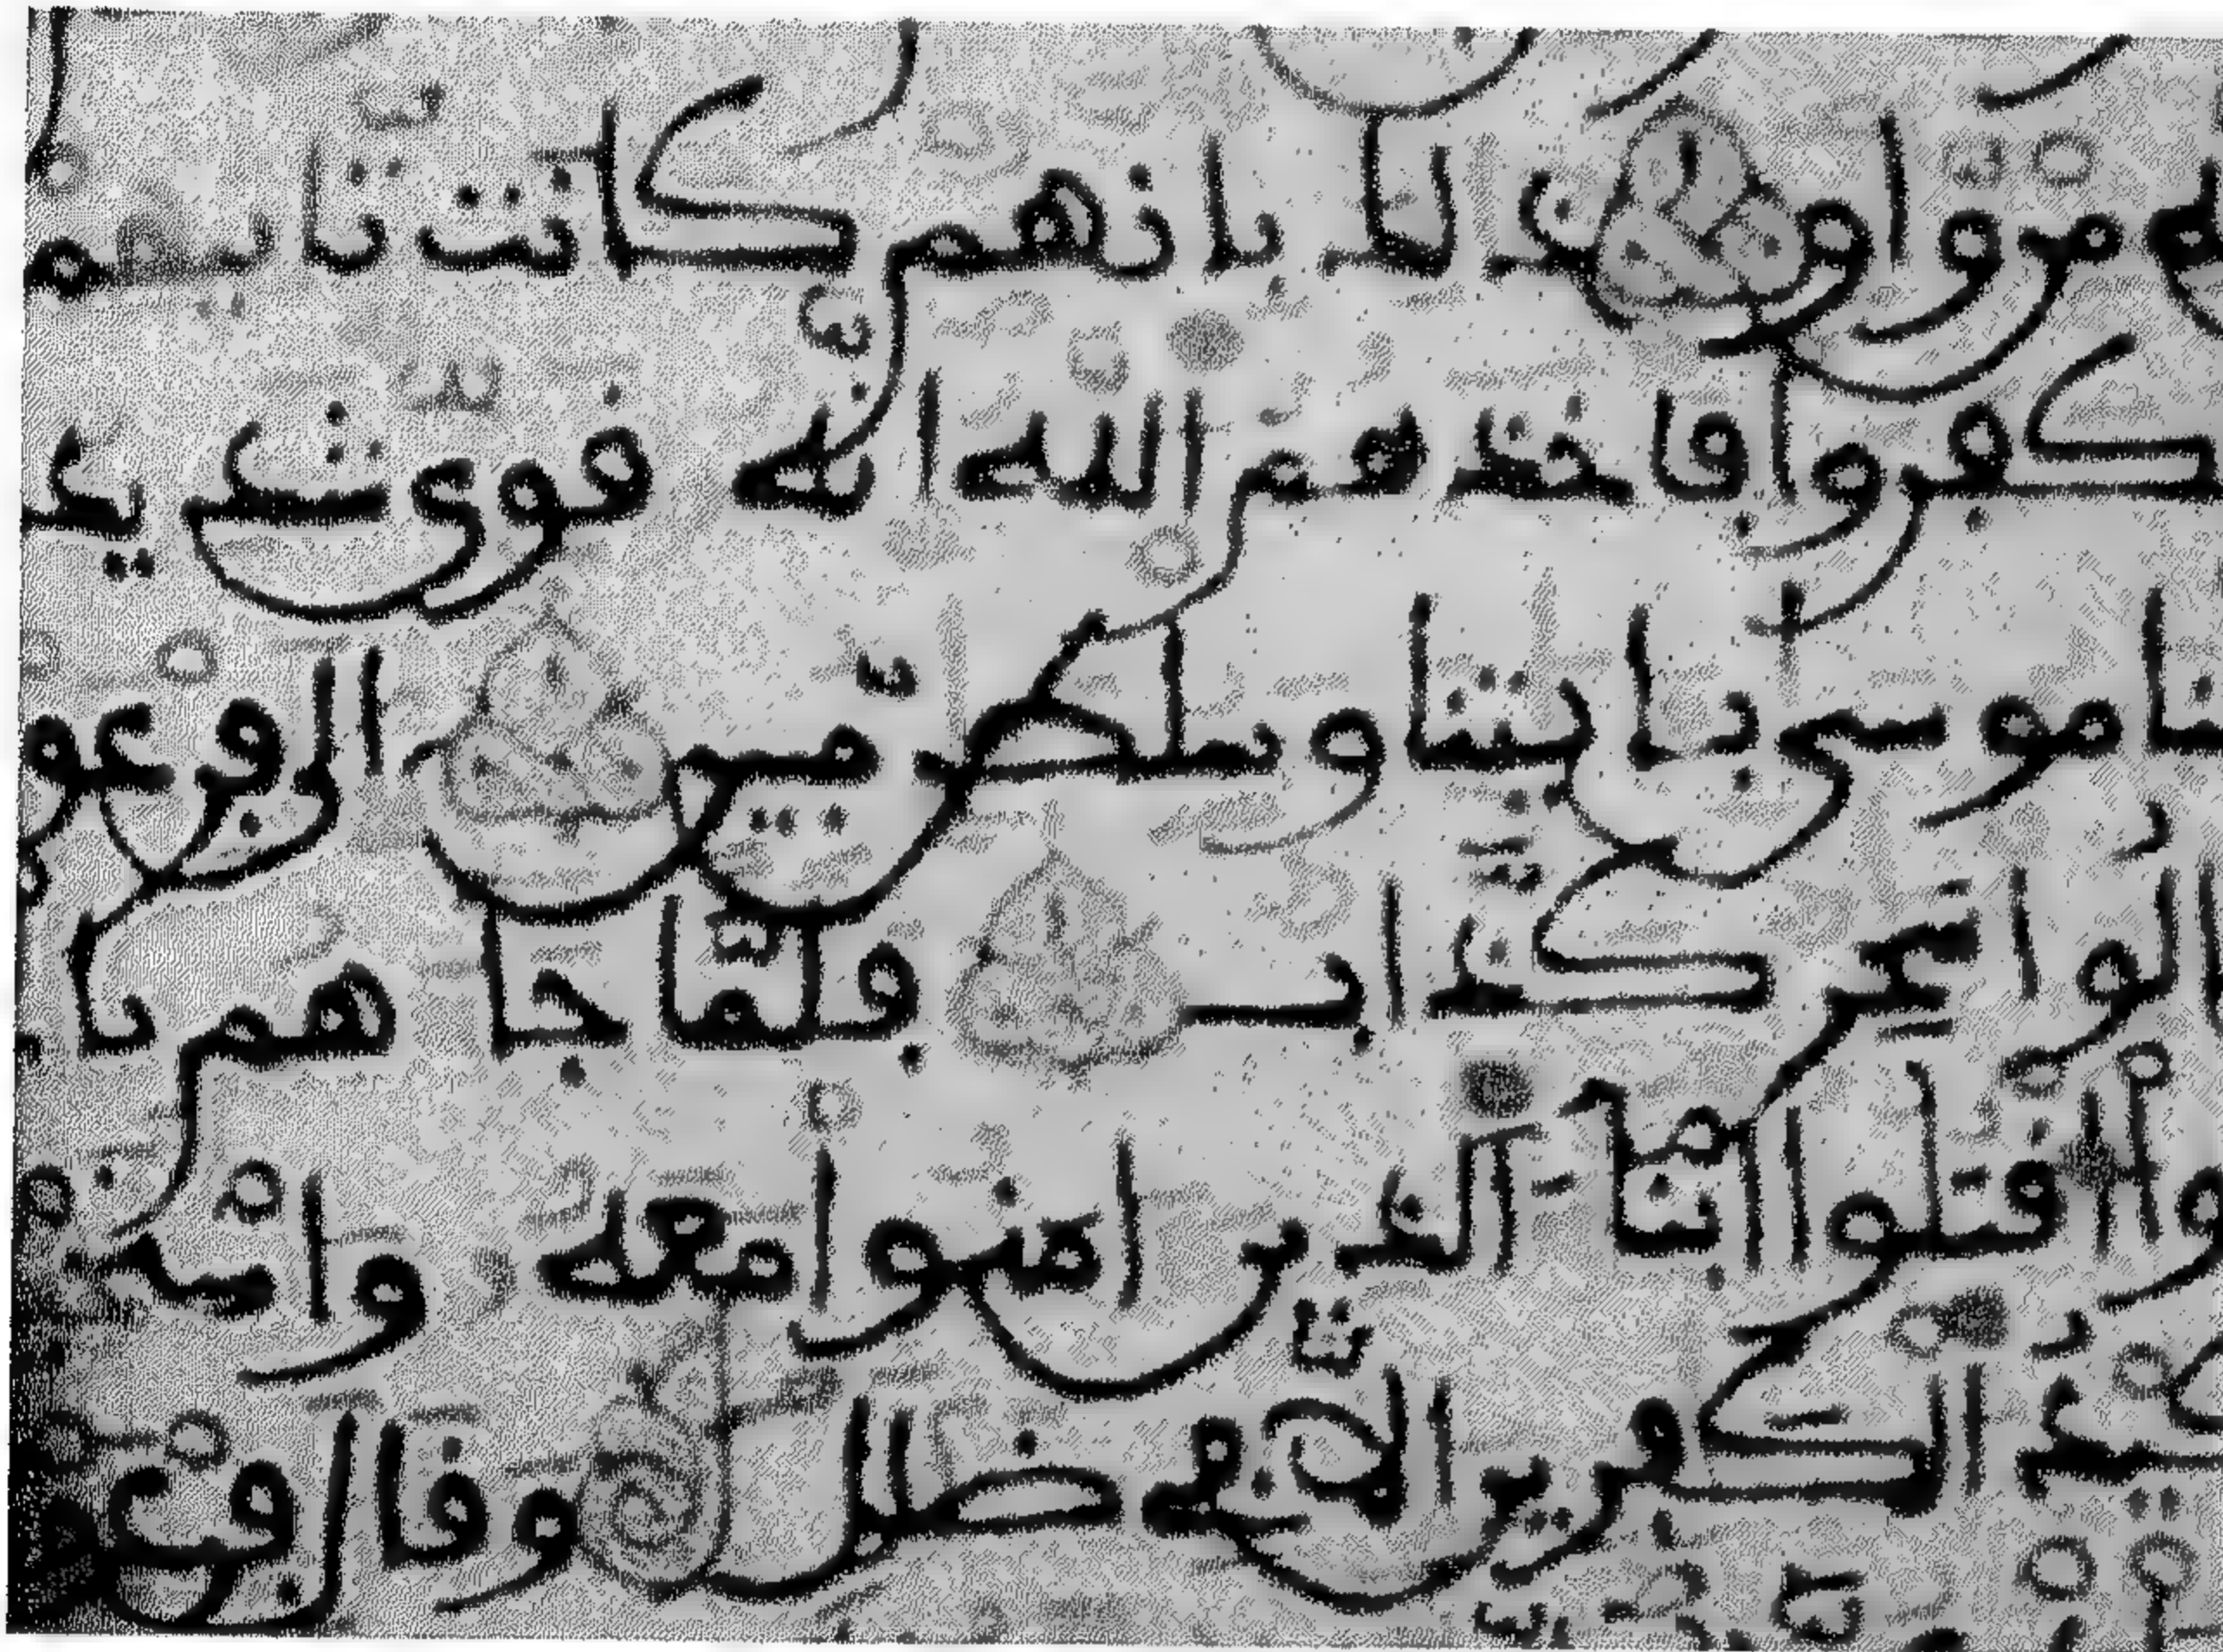 ـله من واق ذلك بانهم كانت تاتيهم
كفروا فاخذهم الله انه قوي شديد
ـنا موسى بايتنا وسلطن مبين الى فرعو
ـالوا سحر كذاب فلما جاهم با
وا اقتلوا ابنا الذين امنوا معه واستـ
ـيد الكفرين الا في ضلل وقال فرعـ